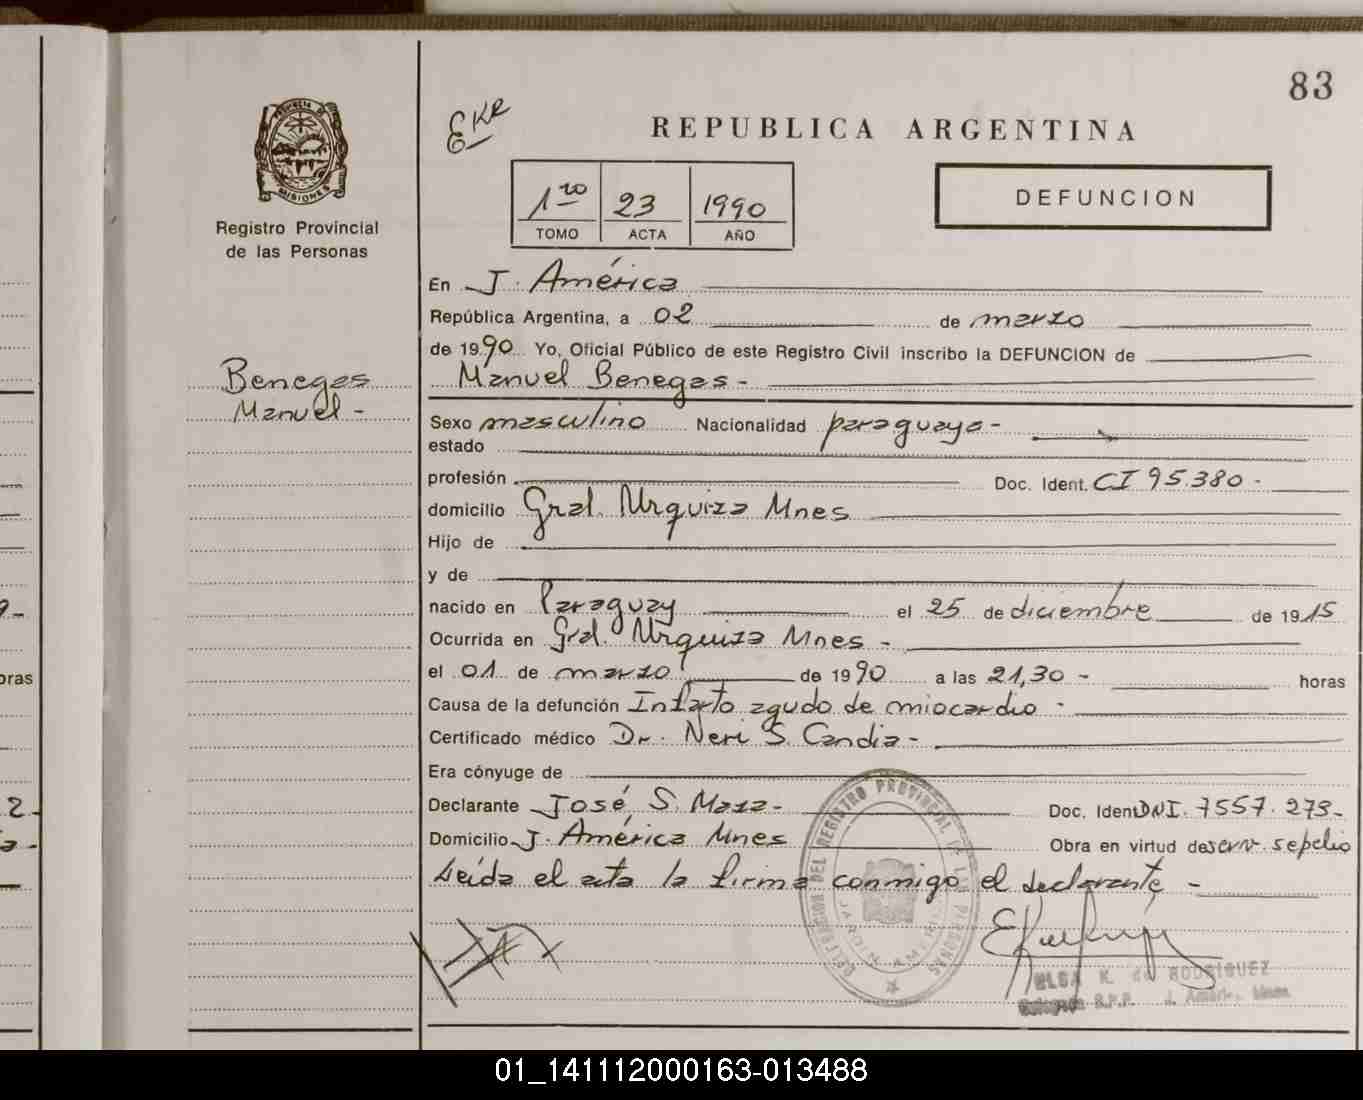 83
PROVINCIA DE
MISIONES
Registro Provincial
de las Personas
REPUBLICA ARGENTINA
1ro 23 1990
TOMO ACTA AÑO
DEFUNCION
En J. América
República Argentina, a 02 de marzo
de 1990 Yo, Oficial Público de este Registro Civil inscribo la DEFUNCION de
Benegas
Manuel -
Manuel Benegas -
Sexo masculino Nacionalidad paraguaya -
estado
profesión Doc. Ident. CI 95.380 -
domicilio Gral. Urquiza Mnes
Hijo de
y de
nacido en Paraguay el 25 de diciembre de 1915
Ocurrida en Gral. Urquiza Mnes -
el 01 de marzo de 1990 a las 21,30 - horas
Causa de la defunción Infarto agudo de miocardio -
Certificado médico Dr. Neri S. Candia -
Era cónyuge de
Declarante José S. Maza - Doc. Iden DNI. 7557.273 -
Domicilio J. América Mnes Obra en virtud de serv. sepelio
Leída el acta la firma conmigo el declarante -
DELEGACION DEL REGISTRO PROVINCIAL DE LAS PERSONAS
JARDIN AMERICA
ELSA K. de RODRIGUEZ
R.P.P. J. América, Mnes
oras
01_141112000163-013488